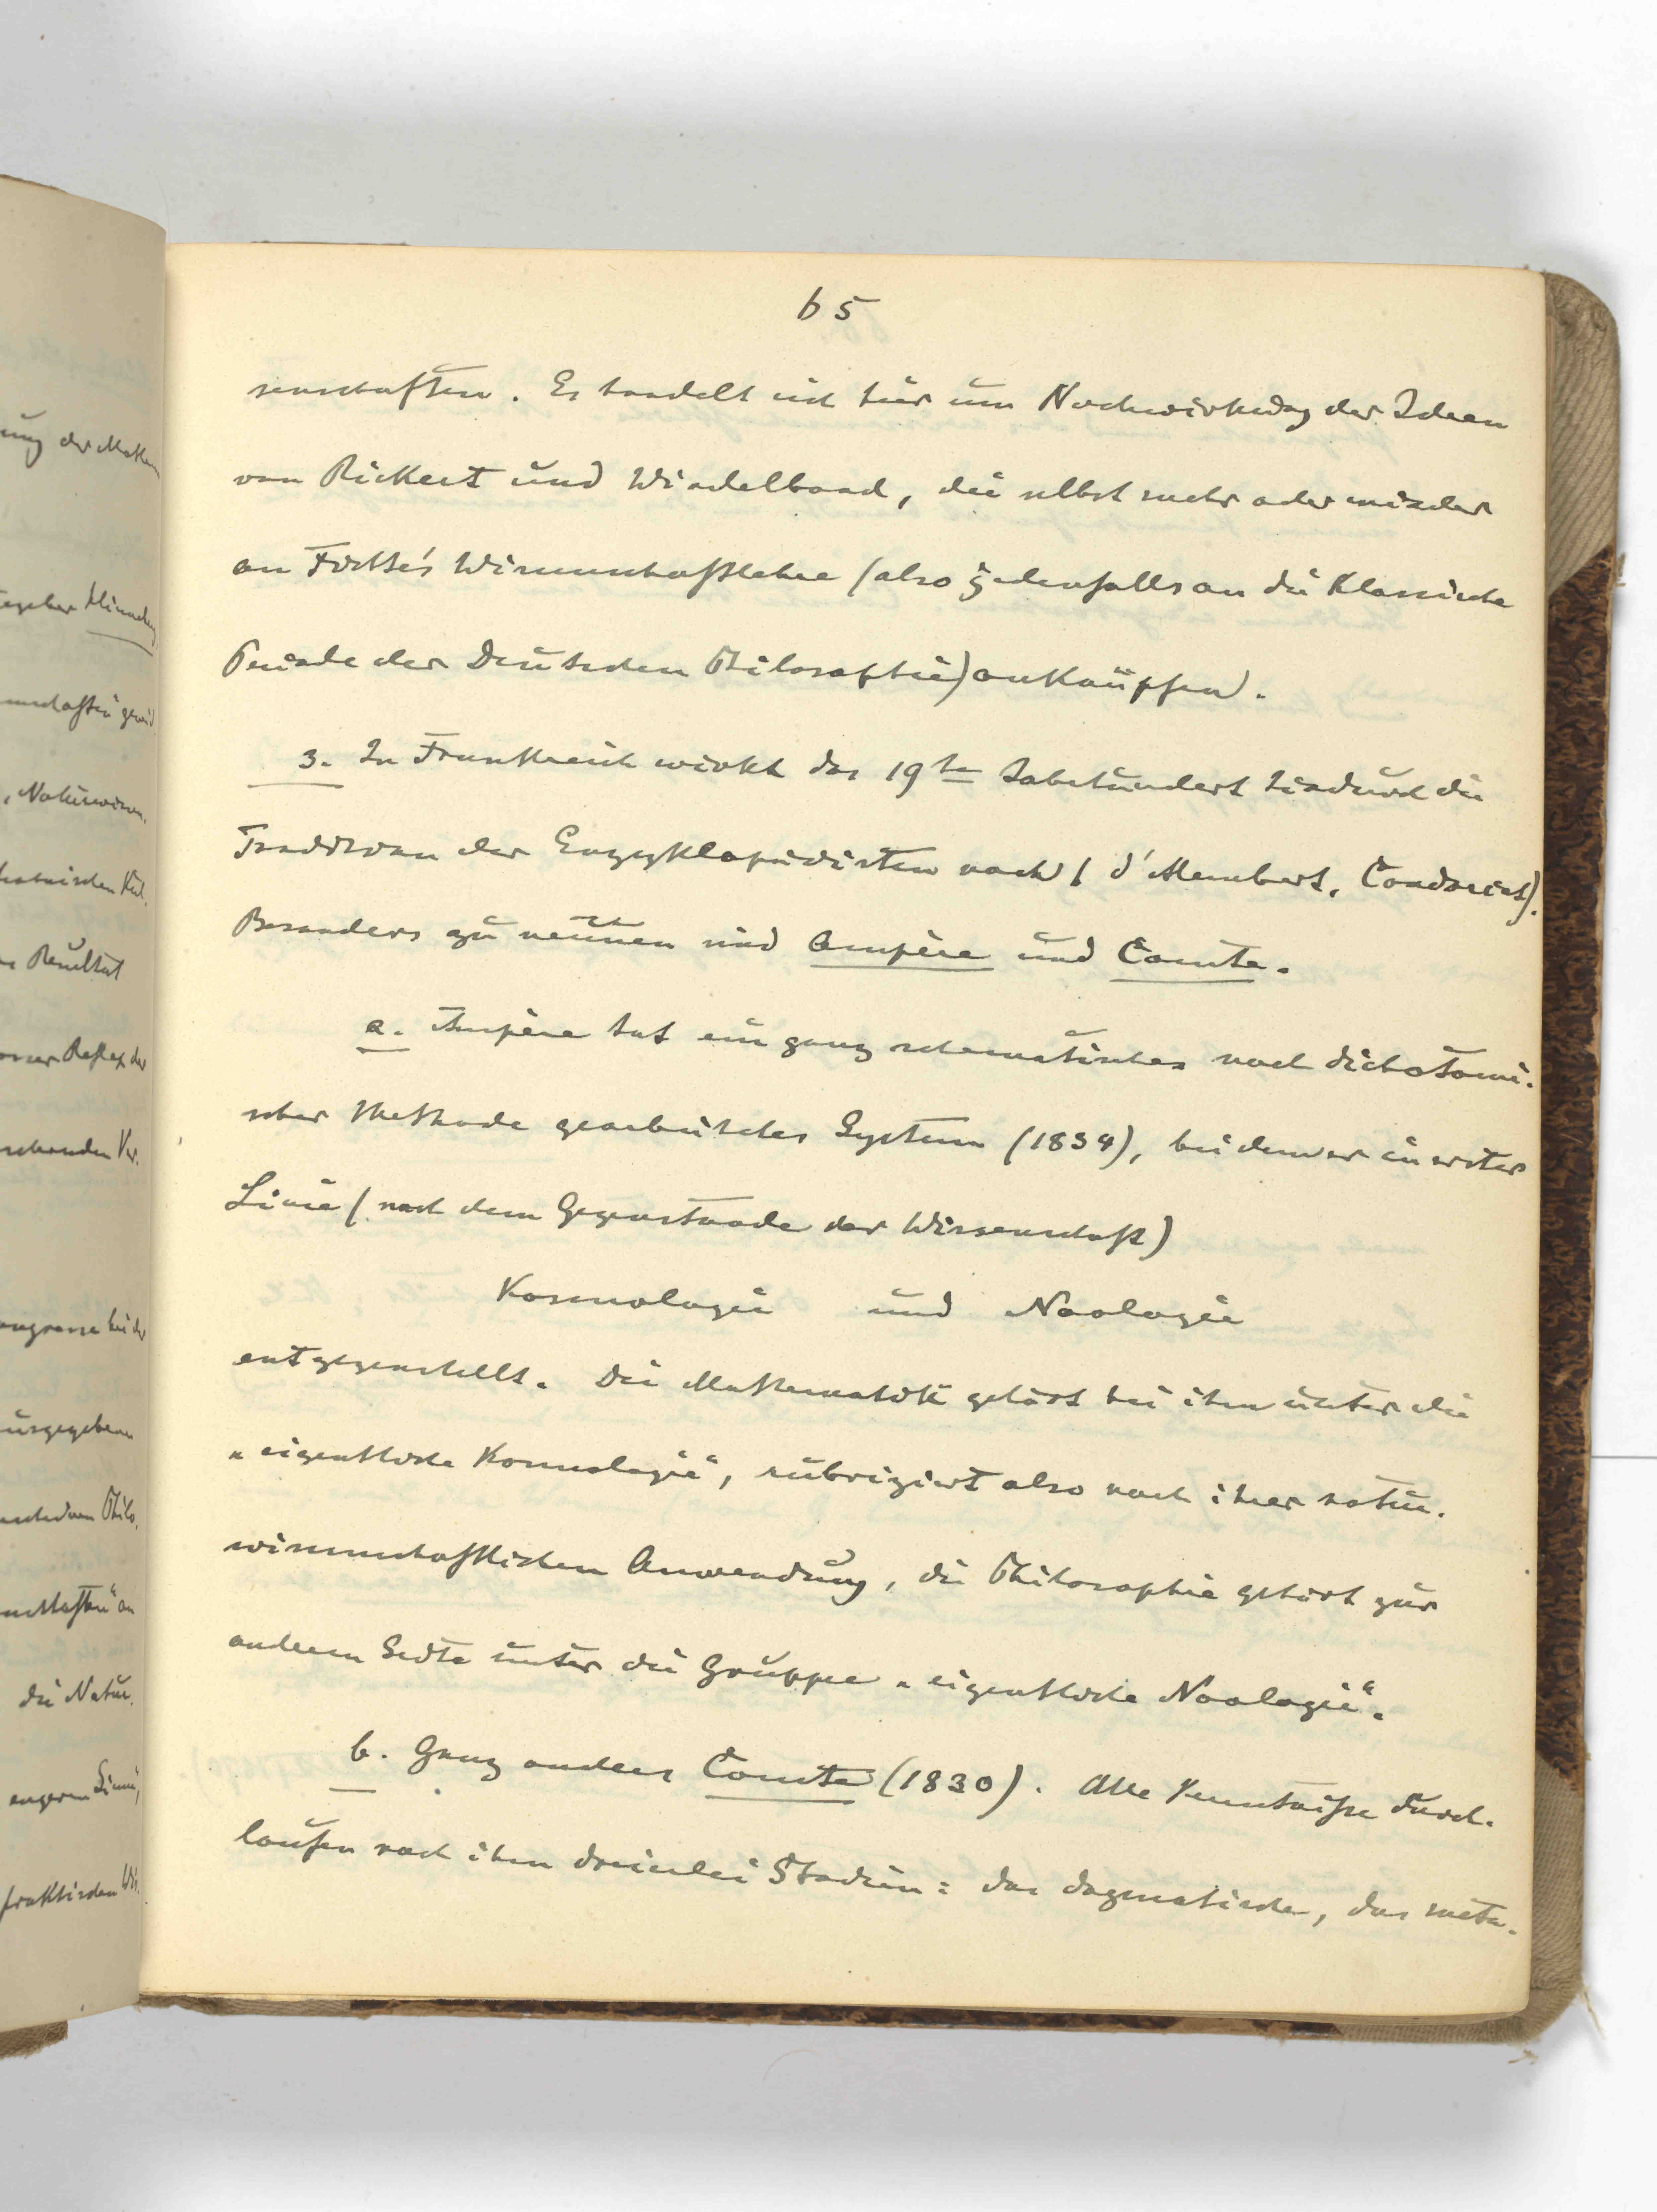 65
senschaften. Es handelt sich hier um Nachwirkung der Ideen
von Rickert und Windelband, die selbst mehr oder minder
an Fichte's Wissenschaftslehre (also jedenfalls an die klassische
Periode der Deutschen Philosophie) anknüpfen.
3. In Frankreich wirkt das 19te Jahrhundert hindurch die
Tradition der Enzyklopädisten nach (d'Alembert, Condorcet).
Besonders zu nennen sind Ampère und Comte.
a. Ampère hat ein ganz schematisches nach dichotomi-
scher Methode gearbeitetes System (1834), bei dem er in erster
Linie (nach dem Gegenstande der Wissenschaft)
Kosmologie und Noologie
entgegenstellt. Die Mathematik gehört bei ihm unter die
„eigentliche Kosmologie“, rubriziert also nach ihrer natur-
wissenschaftlichen Anwendung, die Philosophie gehört zur
anderen Seite unter die Gruppe „eigentliche Noologie“.
b. Ganz anders Comte (1830). Alle Kenntnisse durch-
laufen nach ihm dreierlei Stadien: das dogmatische, das meta-
ung der Mathem
schaften
Naturwissen.
Resultat
Reflex der
ausgegebenen
die Natur.
engeren Sinne,
praktischen Wis.